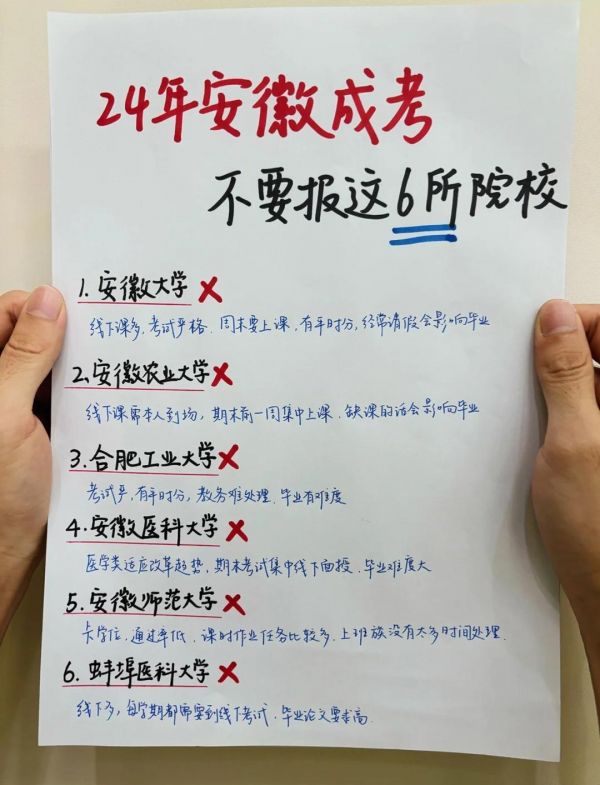 24年安徽成考
不要报这6所院校
1. 安徽大学 ×
线下课多,考试严格.周末要上课,有平时分,经常请假会影响毕业
2. 安徽农业大学 ×
线下课需本人到场,期末前一周集中上课.缺课的话会影响毕业
3. 合肥工业大学 ×
考试严,有平时分,教务难处理.毕业有难度
4. 安徽医科大学 ×
医学类适应改革趋势,期末考试集中线下面授.毕业难度大
5. 安徽师范大学 ×
卡学位,通过率低.课时作业任务比较多,上班族没有太多时间处理.
6. 蚌埠医科大学 ×
线下多,每学期都需要到线下考试.毕业论文要求高.